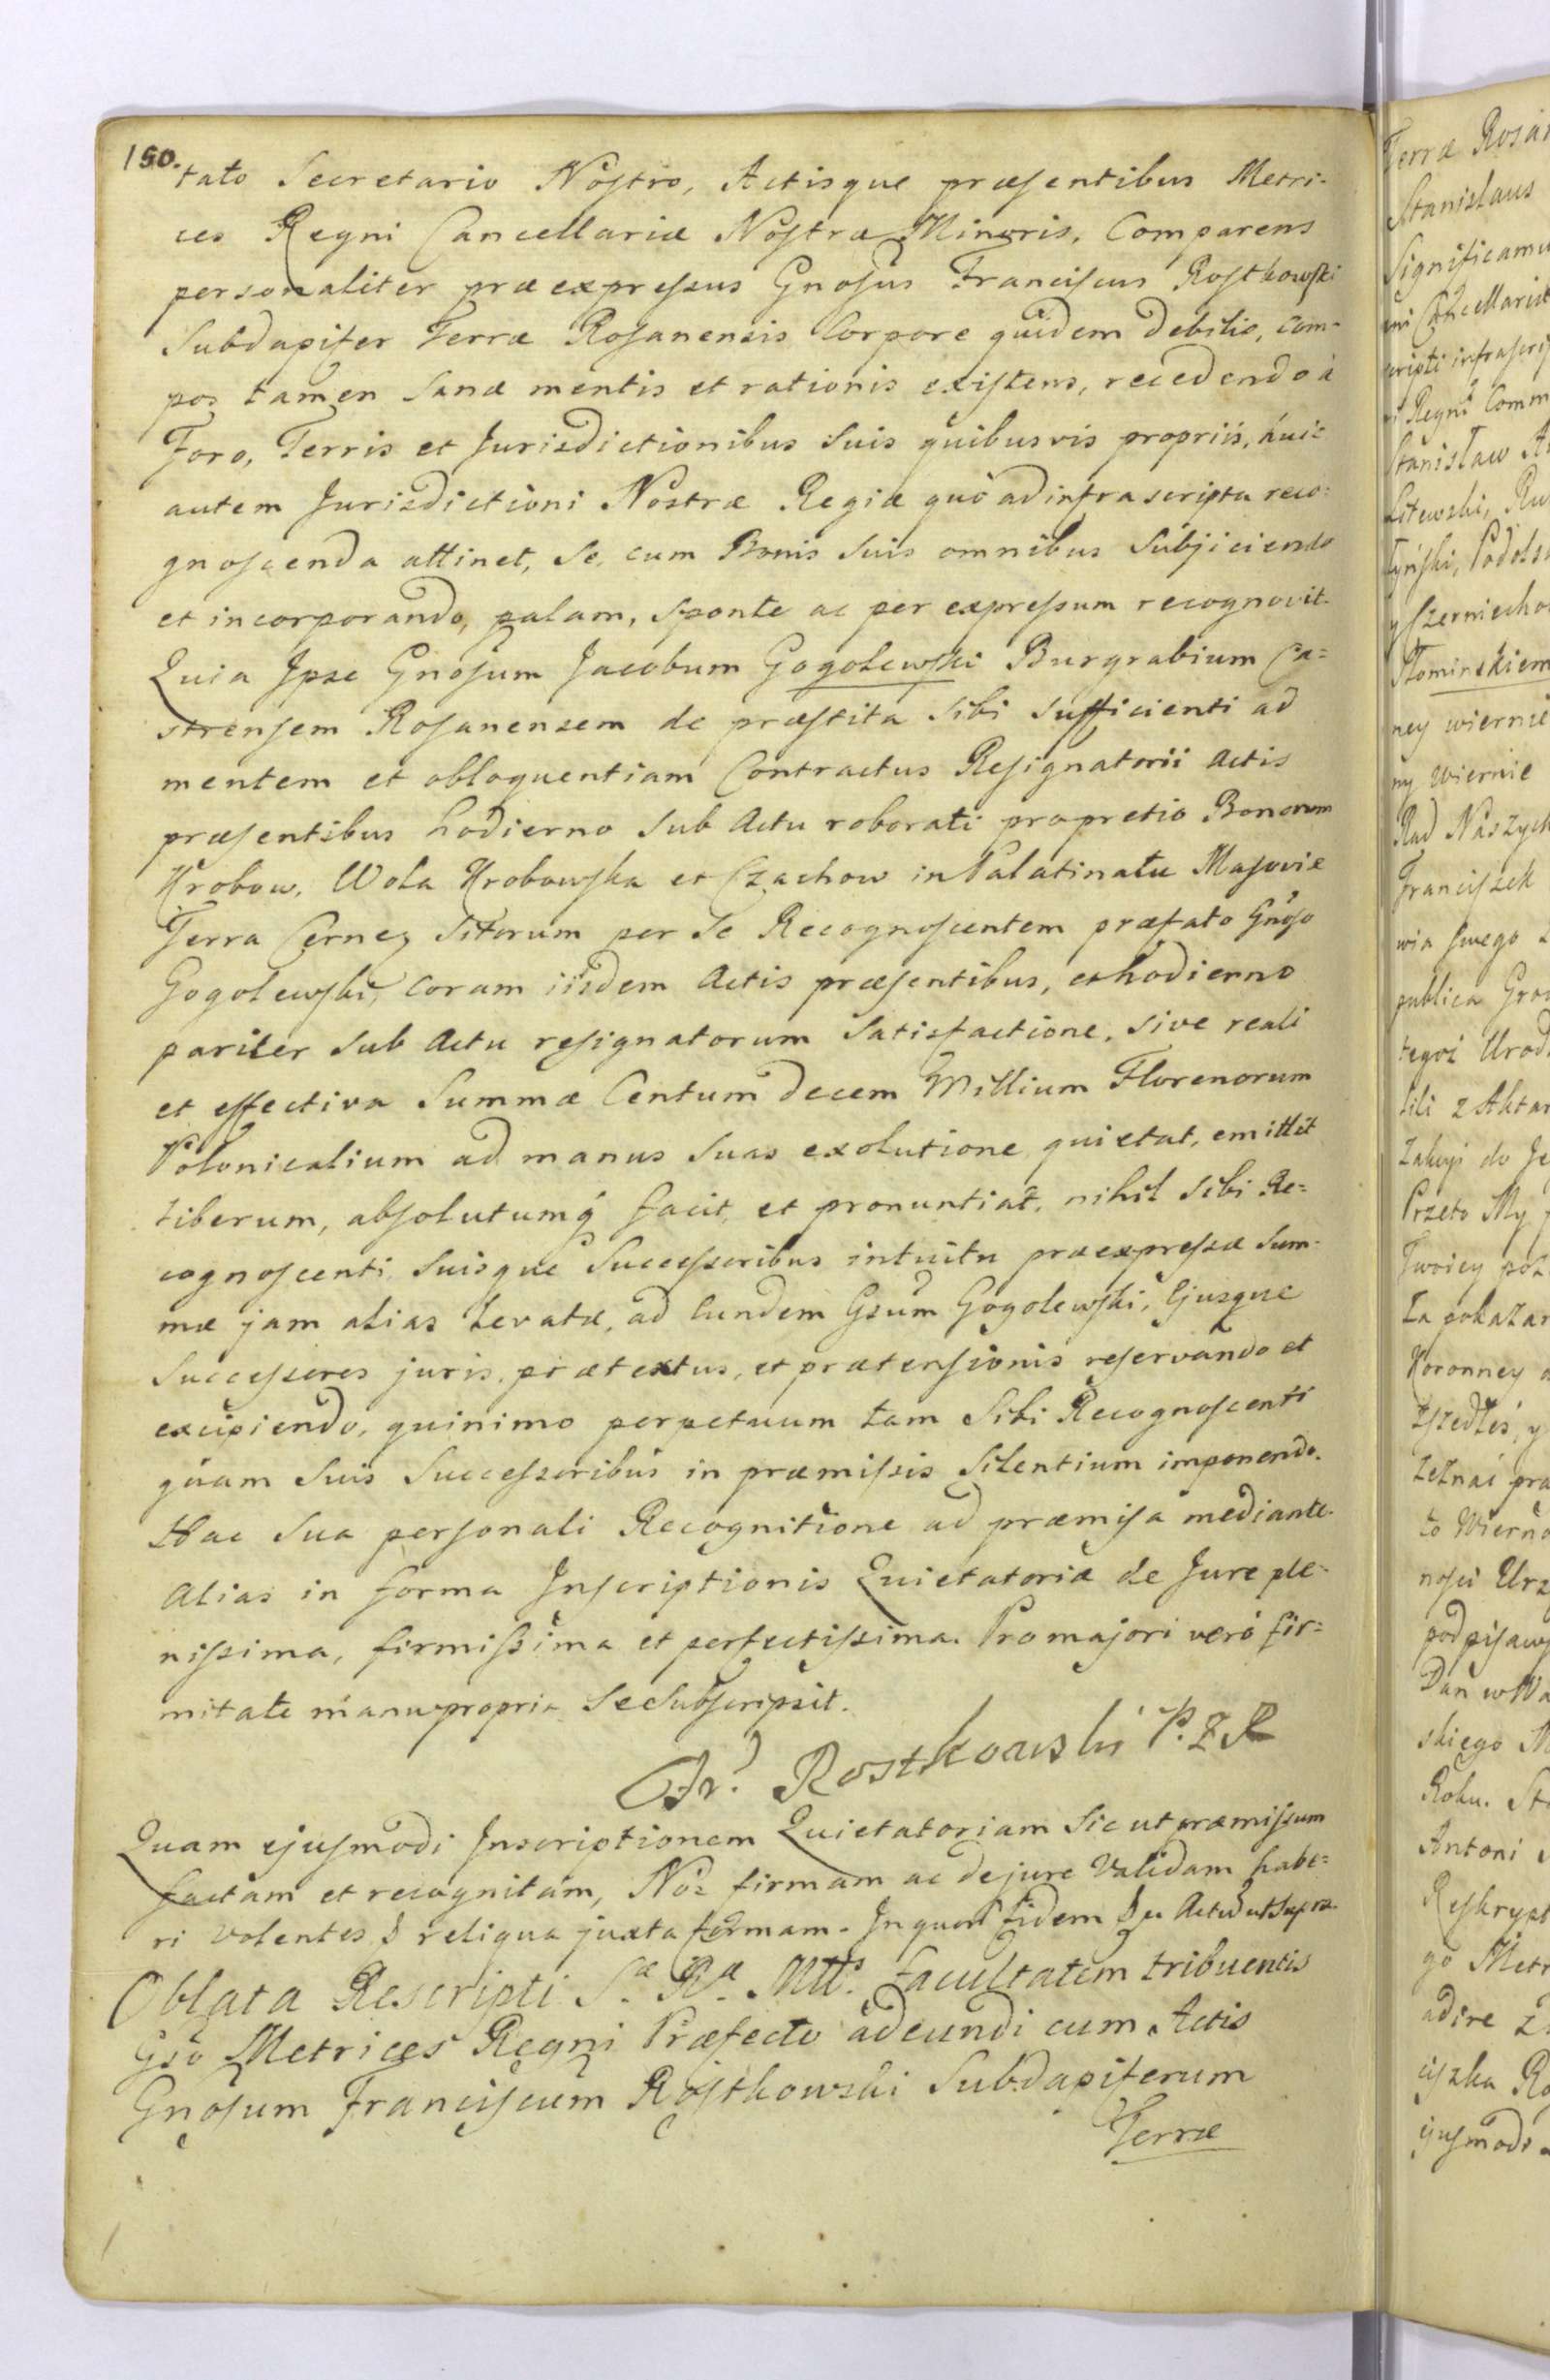 150.
tato Secretario Nostro, Actisque præsentibus Metri-
ces Regni Cancellariæ Nostræ Minoris, Comparens
personaliter præexpressus Gnosus Franciscus Rostkowski
Subdapifer Terræ Rosanensis Corpore quidem debilis, com-
pos tamen sanæ mentis et rationis existens, recedendo à
Foro, Terris et Jurisdictionibus suis quibusvis propriis, huic
autem Jurisdictioni Nostræ Regiæ quò ad infrascripta reco-
gnoscenda attinet, se, cum Bonis suis omnibus subjiciendo
et incorporando, palam, sponte ac per expressum recognovit.
Quia Ipse Gnosum Jacobum Gogolewski Burgrabium Ca-
strensem Rosanensem de præstita sibi sufficienti ad
mentem et obloquentiam Contractus Resignatorii actis
præsentibus hodierno sub Actu roborati pro pretio Bonorum
Krobow, Wola Krobowska et Czachow in Palatinatu Masoviæ
Terra Cernen sitorum per se Recognoscentem præfato Gnoso
Gogolewski, coram iisdem Actis præsentibus, et hodierno
pariter sub Actu resignatorum satisfactione, sive reali
et effectiva Summæ Centum decem Millium Florenorum
Polonicalium ad manus suas exolutione quietat, emittit
liberum, absolutumq́ facit, et pronuntiat, nihil sibi Re-
cognoscenti suisque Successoribus intuitu præexpressæ Sum-
mæ jam alias levatæ, ad Eundem Gsum Gogolewski, Ejusque
Successores juris, prætextus, et prætensionis reservando et
excipiendo, quinimo perpetuum tam sibi Recognoscenti
quam suis Successoribus in præmissis silentium imponendo.
Hac sua personali Recognitione ad præmissa mediante.
Alias in forma Inscriptionis Quietatoriæ de Jure ple-
nissima, firmissima et perfectissima. Pro majori verò fir-
mitate manu propria se subscripsit.
Fr. Rostkowski P. Z R
Quam ejusmodi Inscriptionem Quietatoriam sic ut præmissum
factam et recognitam, Nos firmam ac de jure validam habe-
ri volentes & reliqua juxta formam. In quorum fidem & Actum ut supra.
Oblata Rescripti Sæ Ræ Mttis facultatem tribuentis
Gso Metrices Regni Præfecto adeundi cum Actis
Gnosum Franciscum Rostkowski Subdapiferum
Terræ
Terræ Rosan
Stanislaus
Significamu
Cancellariæ
cripti infrascri
Regni Comm
Stanisław A
Litewski, Ru
Podols
y Czerniecho
Słominskiem
ney wiernie
wiernie
Rad Naszych
Franciszek
wia swego
publica Gro
tegoż Urod
z Aktam
Zakuji do Je
Przeto My
Twoiey po
Za pokaza
Koronney
zszedłes, y
zeznać pra
to Wierno
nosci Urz
podpisawsz
Dan w Wa
skiego M
Roku. St
Antoni
Reskrypt
go Metr
adire
ciszka Ro
ejusmodi